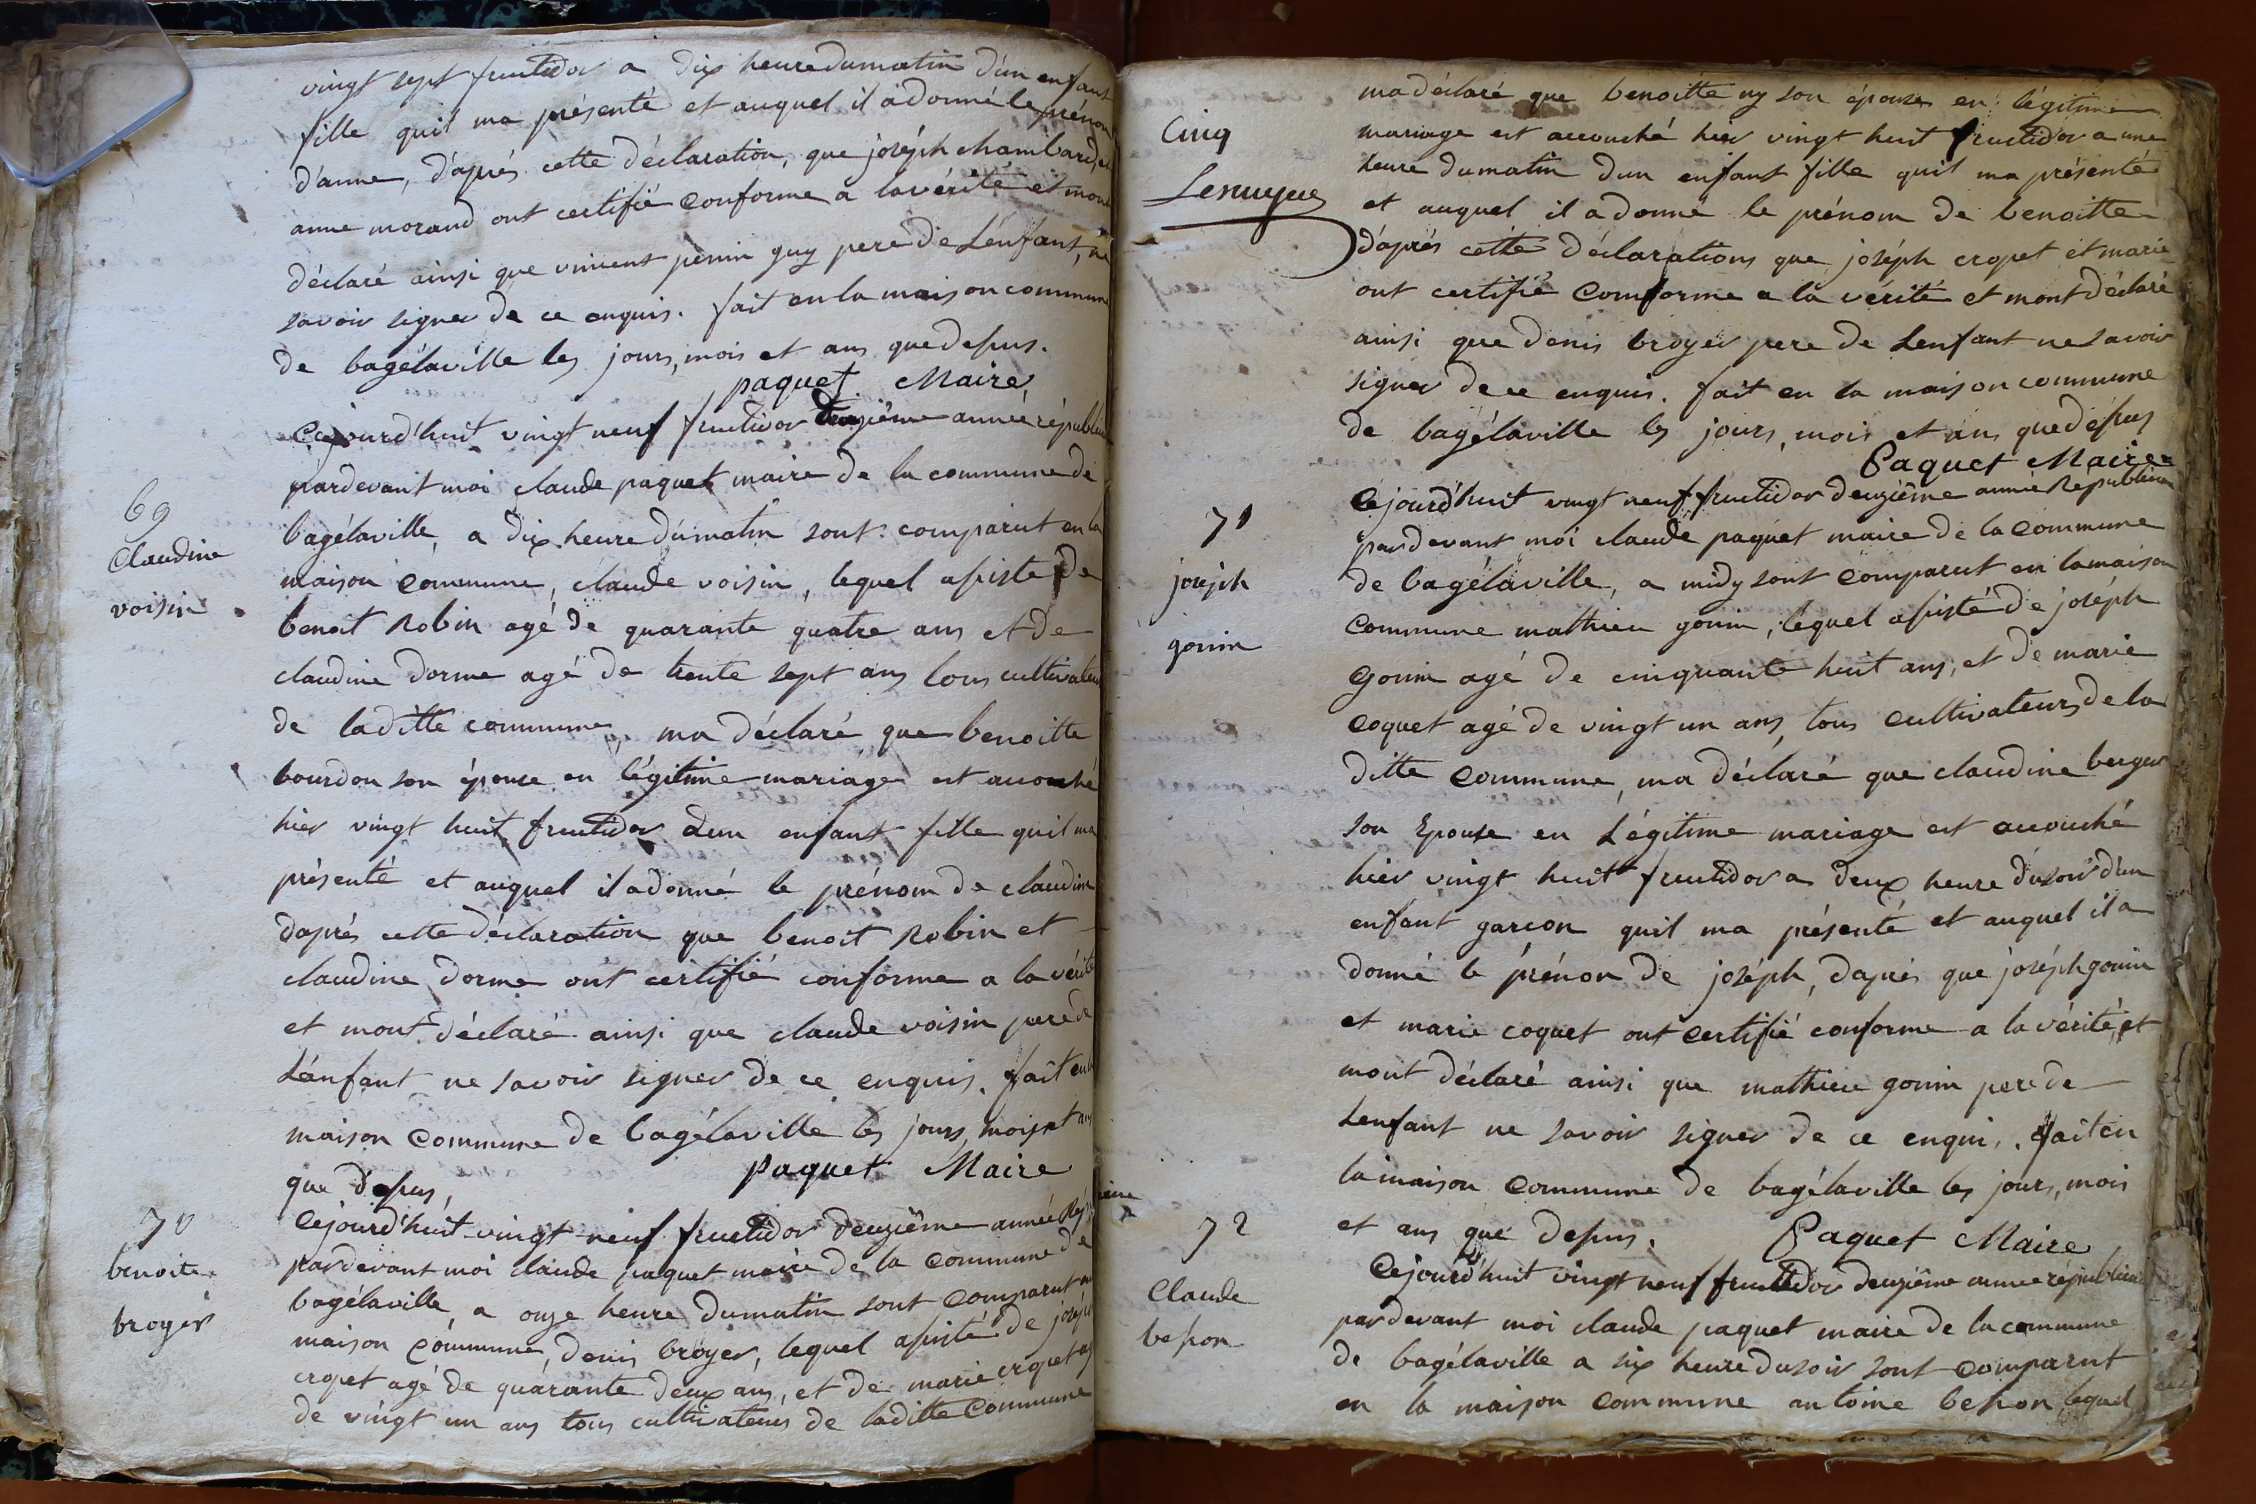 vingt sept fructidor a dix heure dumatin d'un enfant
fille quil ma présenté et auquel il a donné le prénom
d'anne, d'aprés cette déclaration, que joséph chambard, et
anne morand ont certifié conforme a lavérité et mont
déclaré ainsi que vincent perrin guy pere de L'enfant, ne
savoir signer de ce enquis. fait en la maison commune
de bagélaville les jours, mois et ans que depus.
paquet Maire
69
Claudine
voisin
Cejourd'huit vingt neuf fructidor deuziême année républi
pardevant moi claude paquet maire de la commune de
bagélaville, a dix heure dumatin sont comparut en la
maison commune, claude voisin, lequel assisté de
benoit Robin agé de quarante quatre ans et de
claudine dorme agé de trente sept ans tous cultivateur
de laditte commune, ma déclaré que benoitte
bourdon son épouse en légitime mariage est accouché
hier vingt huit fructidor dun enfant fille quil ma
présenté et auquel il a donné le prénom de claudine
daprés cette déclaration que benoit Robin et
claudine dorme ont certifié conforme a la vérité
et mont déclaré ainsi que claude voisin pere de
L'enfant ne savoir signer de ce enquis. fait en la
maison commune de bagélaville les jours, mois et ans
que depus,
paquet Maire
70
benoite
broyer
Cejourd'huit vingt neuf fructidor deuziême année Rép
pardevant moi claude paquet maire de la commune de
bagélaville a onze heure dumatin sont comparut en
maison commune, denis broyer, lequel assisté de joséph
cropet agé de quarante deux ans, et de marie cropet agé
de vingt un ans tous cultivateurs de laditte commune
Cinq
ma déclaré que benoitte ny son épouse en légitime
mariage est accouché hier vingt huit fructidor a une
heure dumatin dun enfant fille quil ma présenté
et auquel il a donné le prénom de benoitte
d'aprés cette déclarations que joséph cropet et marie
ont certifié comforme a la vérité et mont déclaré
ainsi que denis broyer pere de Lenfant ne savoir
signer de ce enquis. fait en la maison commune
de bagélaville les jours, mois et ans que depus
Paquet Maire
71
joseph
gonin
Cejourd'huit vingt neuf fructidor deuziême année Républicain
pardevant moi claude paquet maire de la commune
de bagélaville, a midy sont comparut en la maison
commune mathieu gonin, lequel assisté de joséph
gonin agé de cinquante huit ans, et de marie
coquet agé de vingt un ans, tous cultivateurs de la
ditte commune, ma déclaré que claudine berger
son Epouse en Légitime mariage est accouché
hier vingt huit fructidor a deux heure dusoir d'un
enfant garcon quil ma présenté et auquel il a
donné le prénon de joséph, daprés que joséph gonin
et marie coquet ont certifié conforme a la vérité, et
mont déclaré ainsi que mathieu gonin pere de
Lenfant ne savoir signer de ce enqui. fait en
la maison commune de bagélaville les jours, mois
et ans que depus.
Paquet Maire
72
Claude
besson
Cejourd'huit vingt neuf fructidor deuziême année républicai
pardevant moi claude paquet maire de la commune
de bagélaville a six heure dusoir sont comparut
en la maison commune antoine besson, lequel